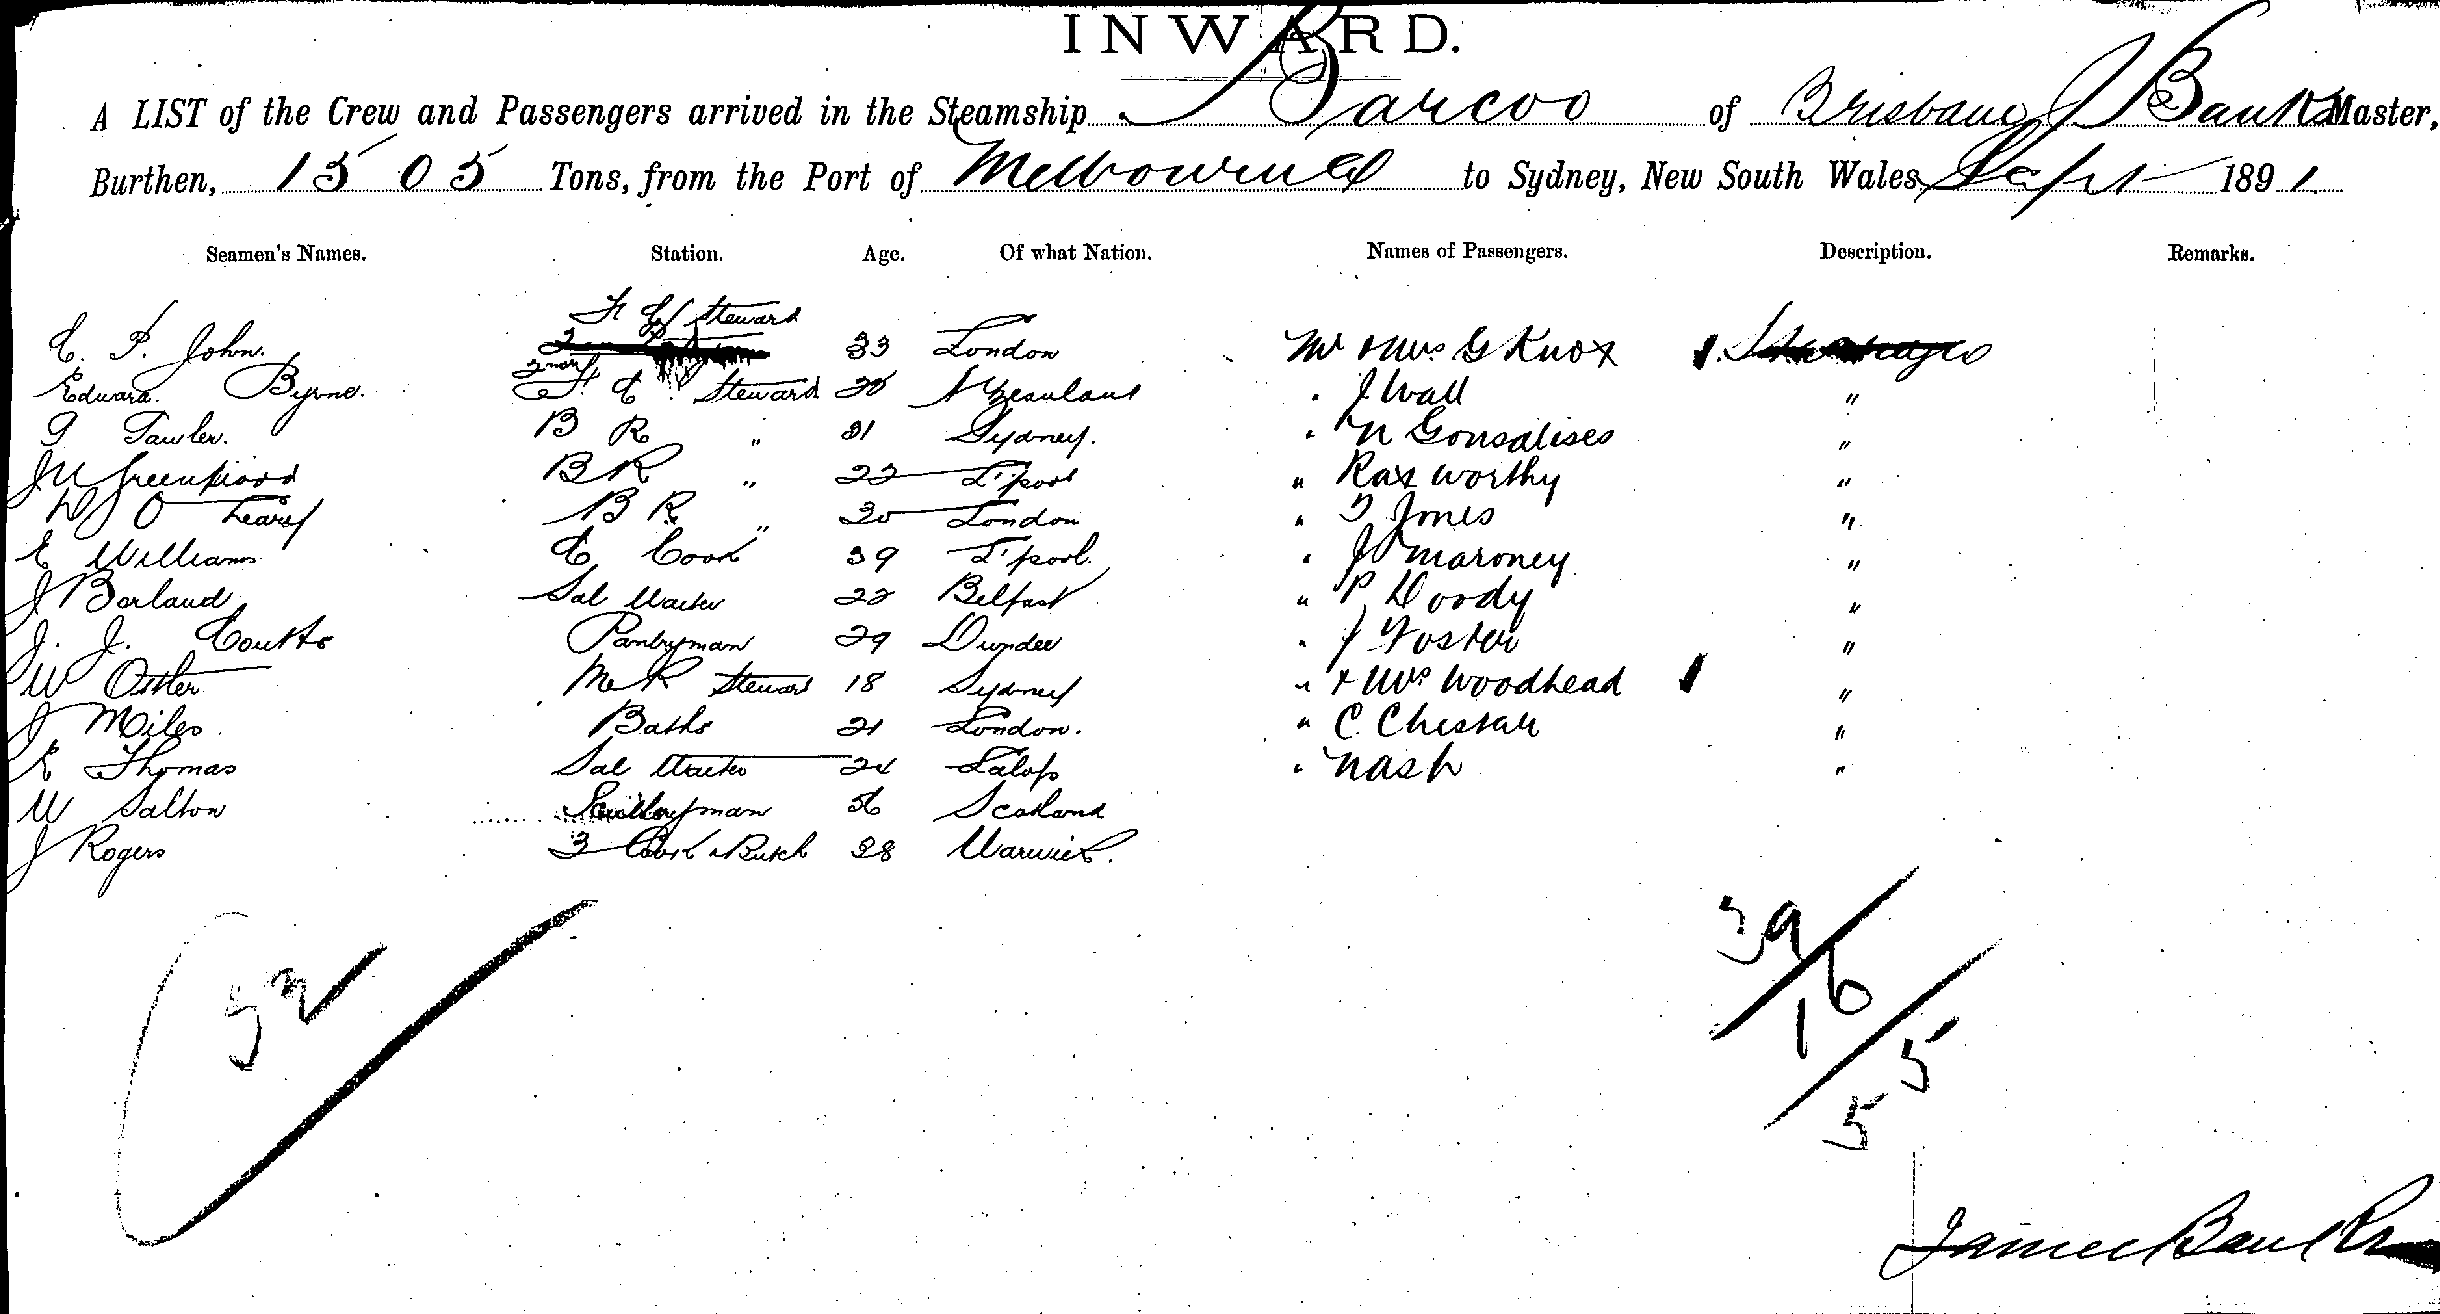 INWARD.
A LIST of the Crew and Passengers arrived in the Steamship Barcoo of Brisbane J Banks Master,
Burthen, 1505 Tons, from the Port of Melbourne to Sydney, New South Wales Sept 1891
Seamen's Names. Station. Age. Of what Nation. Names of Passengers. Description. Remarks.
F C Steward
C. P. John. 33 London Mr & Mrs G Knox 1
Edward Byrne. 2nd F. C. Steward N Zealand " J Wall "
G Fawler. B R " 31 Sydney. " N Gonsalises "
J W Greenwood B R " 22 L'pool " Raxworthy "
D J O Leary B R " 30 London " T Jones "
E Williams C Cook 39 L'pool. " J Maroney "
J Borland Sal Waiter 22 Belfast " P Doody "
J. J. Coutts Pantryman 29 Dundee " J Foster "
W Ostler M R Steward 18 Sydney " & Mrs Woodhead 1 "
J Miles. Baths 21 London. " C Chestar "
E Thomas Sal Waiter 24 Salop " Nash "
W Salton Sculleryman 56 Scotland
J Rogers 3 Cook & Butch 28 Warwick.
52
39
16
55
James Banks